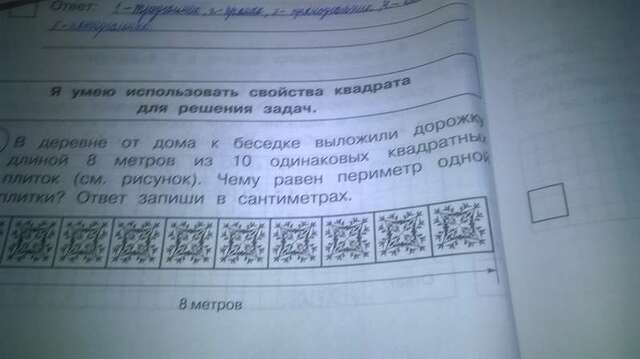 Ответ: 1-
Я умею использовать свойства квадрата
для решения задач.
В деревне от дома к беседке выложили дорожку
длиной 8 метров из 10 одинаковых квадратных
плиток (см. рисунок). Чему равен периметр одной
плитки? Ответ запиши в сантиметрах.
8 метров